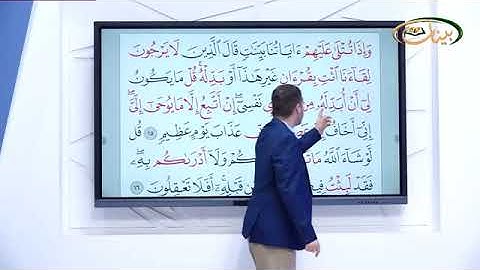 بينات
وَإِذَا تُتْلَىٰ عَلَيْهِمْ ءَايَاتُنَا بَيِّنَٰتٍ قَالَ ٱلَّذِينَ لَا يَرْجُونَ
لِقَآءَنَا ٱئْتِ بِقُرْءَانٍ غَيْرِ هَٰذَآ أَوْ بَدِّلْهُ قُلْ مَا يَكُونُ
لِىٓ أَنْ أُبَدِّلَهُۥ مِن نَفْسِىٓ إِنْ أَتَّبِعُ إِلَّا مَا يُوحَىٰٓ إِلَىَّ
إِنِّىٓ أَخَافُ عَذَابَ يَوْمٍ عَظِيمٍ ١٥ قُل
لَّوْ شَآءَ ٱللَّهُ مَا وَلَآ أَدْرَىٰكُم بِهِۦ
فَقَدْ لَبِثْتُ قَبْلِهِۦٓ أَفَلَا تَعْقِلُونَ ١٦